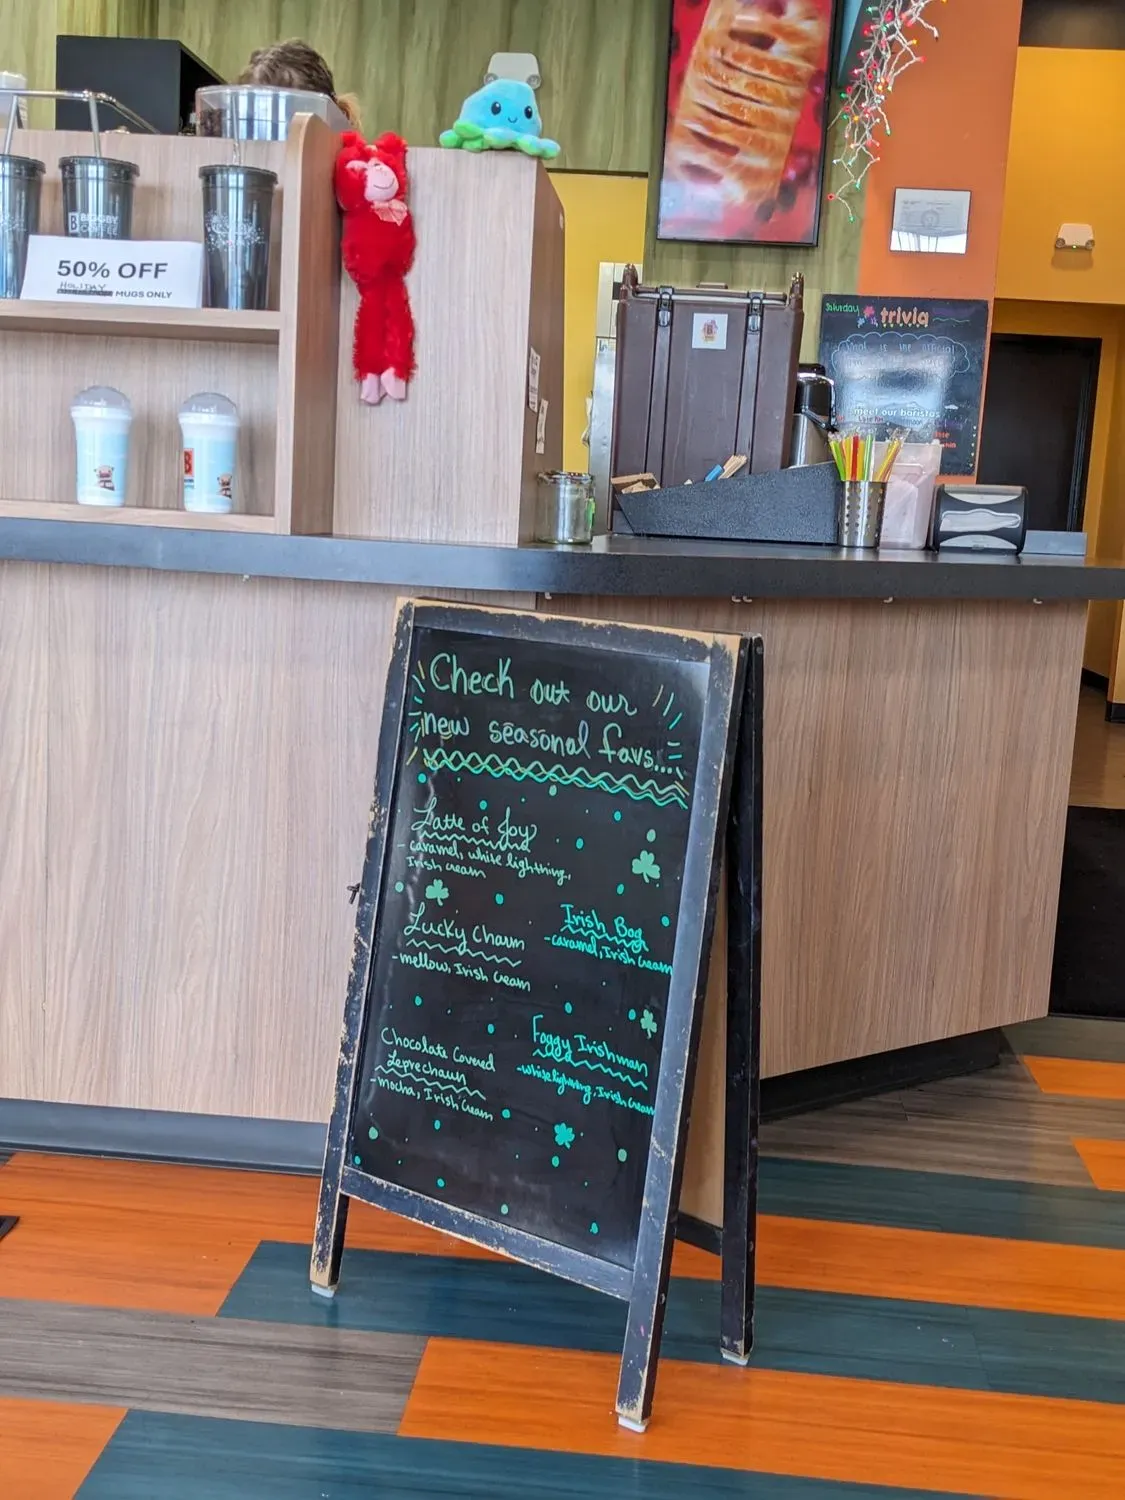 BIGGBY
COFFEE
50% OFF
HOLIDAY
MUGS ONLY
B
Saturday
trivia
meet our baristas
Check out our
new seasonal favs...
Latte of Joy
- caramel, white lighthing,
Irish cream
Lucky Charm
- mellow, Irish Cream
Irish Bog
- caramel, Irish Cream
Chocolate Covered
Leprechaun
- mocha, Irish Cream
Foggy Irishman
- white lightning, Irish Cream